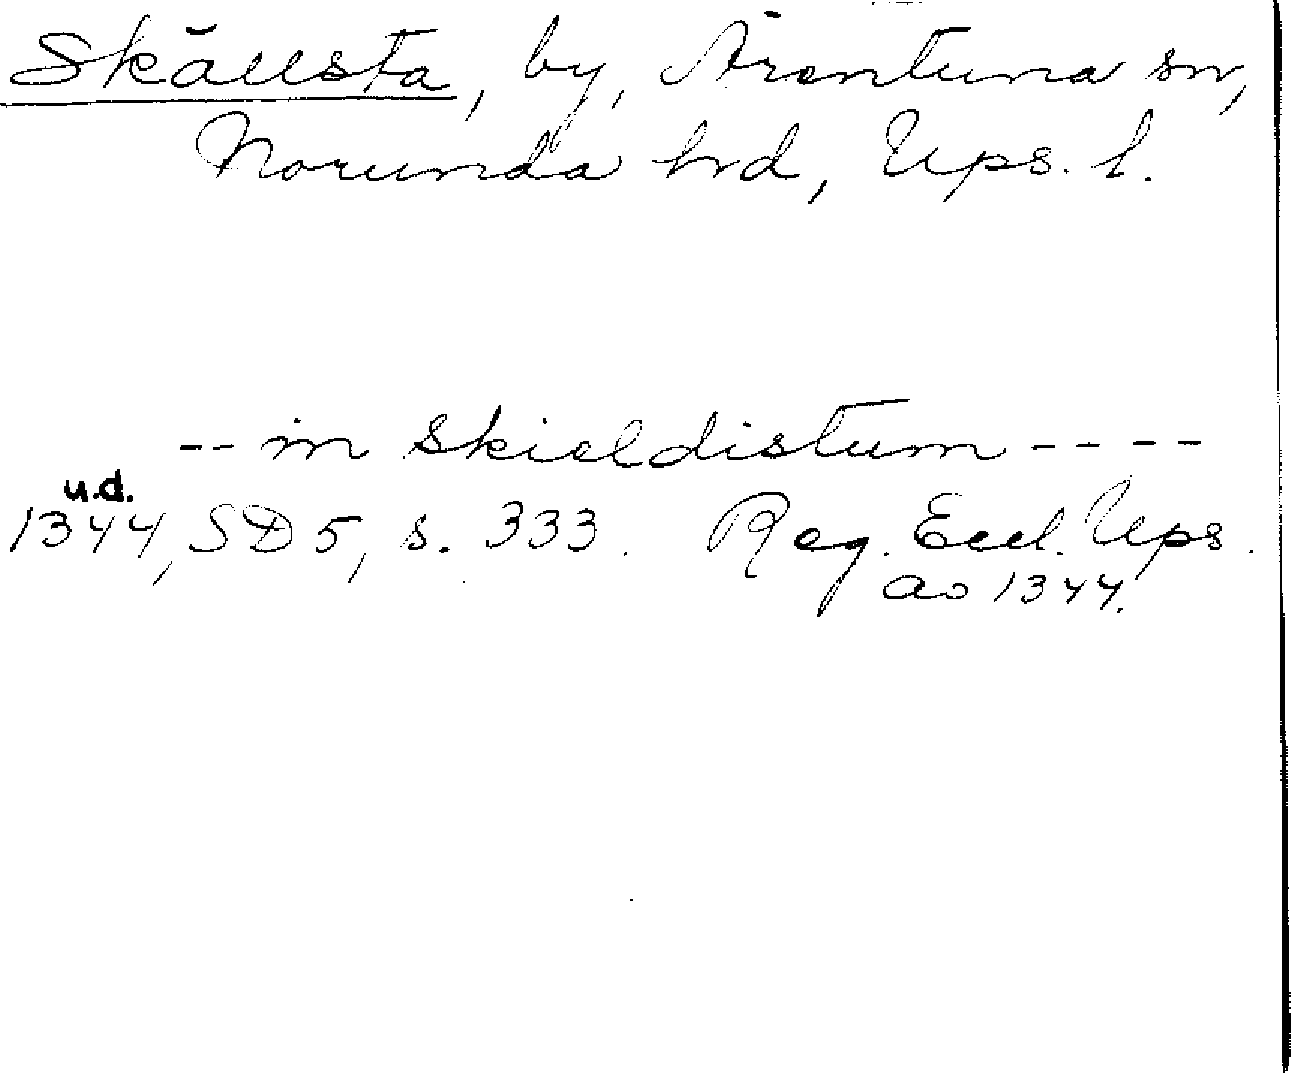 Skällsta, by, Ärentuna sn,
Norunda hrd, Ups. l.
-- in Skieldistum ----
u.d.
1344, SD 5, s. 333. Reg. Eccl. Ups.
ao 1344.